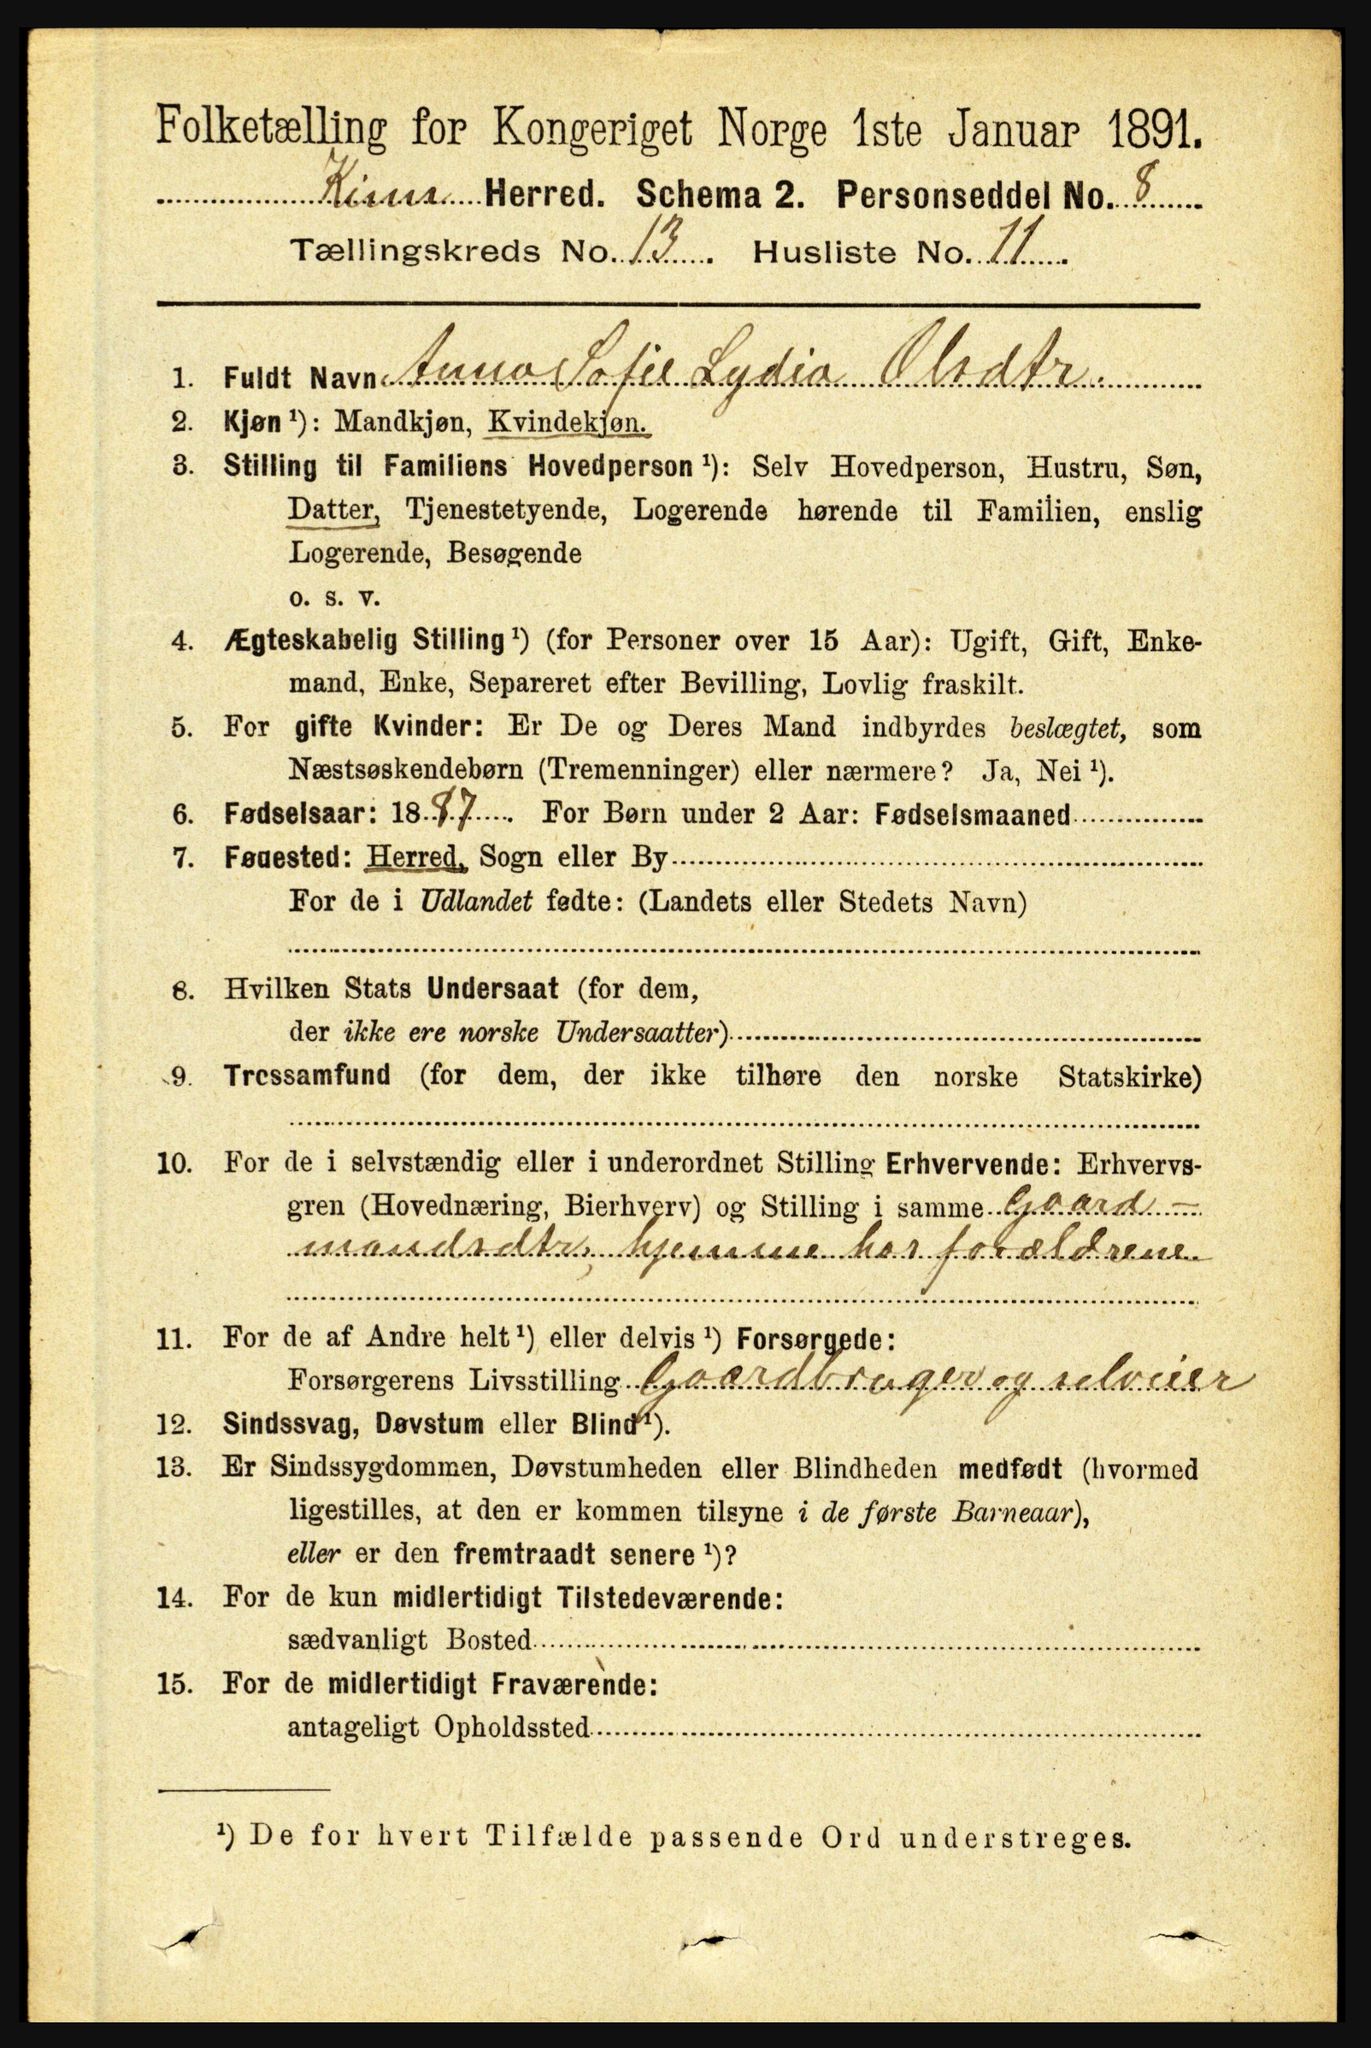 Folketælling for Kongeriget Norge 1ste Januar 1891.
Kinn Herred. Schema 2. Personseddel No. 8
Tællingskreds No. 13. Husliste No. 11.
1. Fuldt Navn Anna Sofie Lydia Olsdtr.
2. Kjøn ¹): Mandkjøn, Kvindekjøn.
3. Stilling til Familiens Hovedperson ¹): Selv Hovedperson, Hustru, Søn,
Datter, Tjenestetyende, Logerende hørende til Familien, enslig
Logerende, Besøgende
o. s. v.
4. Ægteskabelig Stilling ¹) (for Personer over 15 Aar): Ugift, Gift, Enke-
mand, Enke, Separeret efter Bevilling, Lovlig fraskilt.
5. For gifte Kvinder: Er De og Deres Mand indbyrdes beslægtet, som
Næstsøskendebørn (Tremenninger) eller nærmere? Ja, Nei ¹).
6. Fødselsaar: 1887. For Børn under 2 Aar: Fødselsmaaned
7. Føuested: Herred, Sogn eller By
For de i Udlandet fødte: (Landets eller Stedets Navn)
8. Hvilken Stats Undersaat (for dem,
der ikke ere norske Undersaatter)
9. Trossamfund (for dem, der ikke tilhøre den norske Statskirke)
10. For de i selvstændig eller i underordnet Stilling Erhvervende: Erhvervs-
gren (Hovednæring, Bierhverv) og Stilling i samme Gaard-
mandsdtr, hjemme hos forældrene
11. For de af Andre helt ¹) eller delvis ¹) Forsørgede:
Forsørgerens Livsstilling Gaardbruger og selveier
12. Sindssvag, Døvstum eller Blind ¹).
13. Er Sindssygdommen, Døvstumheden eller Blindheden medfødt (hvormed
ligestilles, at den er kommen tilsyne i de første Barneaar),
eller er den fremtraadt senere ¹)?
14. For de kun midlertidigt Tilstedeværende:
sædvanligt Bosted
15. For de midlertidigt Fraværende:
antageligt Opholdssted
¹) De for hvert Tilfælde passende Ord understreges.